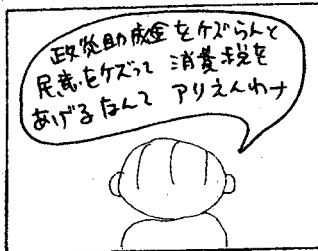 政党助成金をケズらんと
民意をケズって 消費税を
あげるなんて アリえんわナ